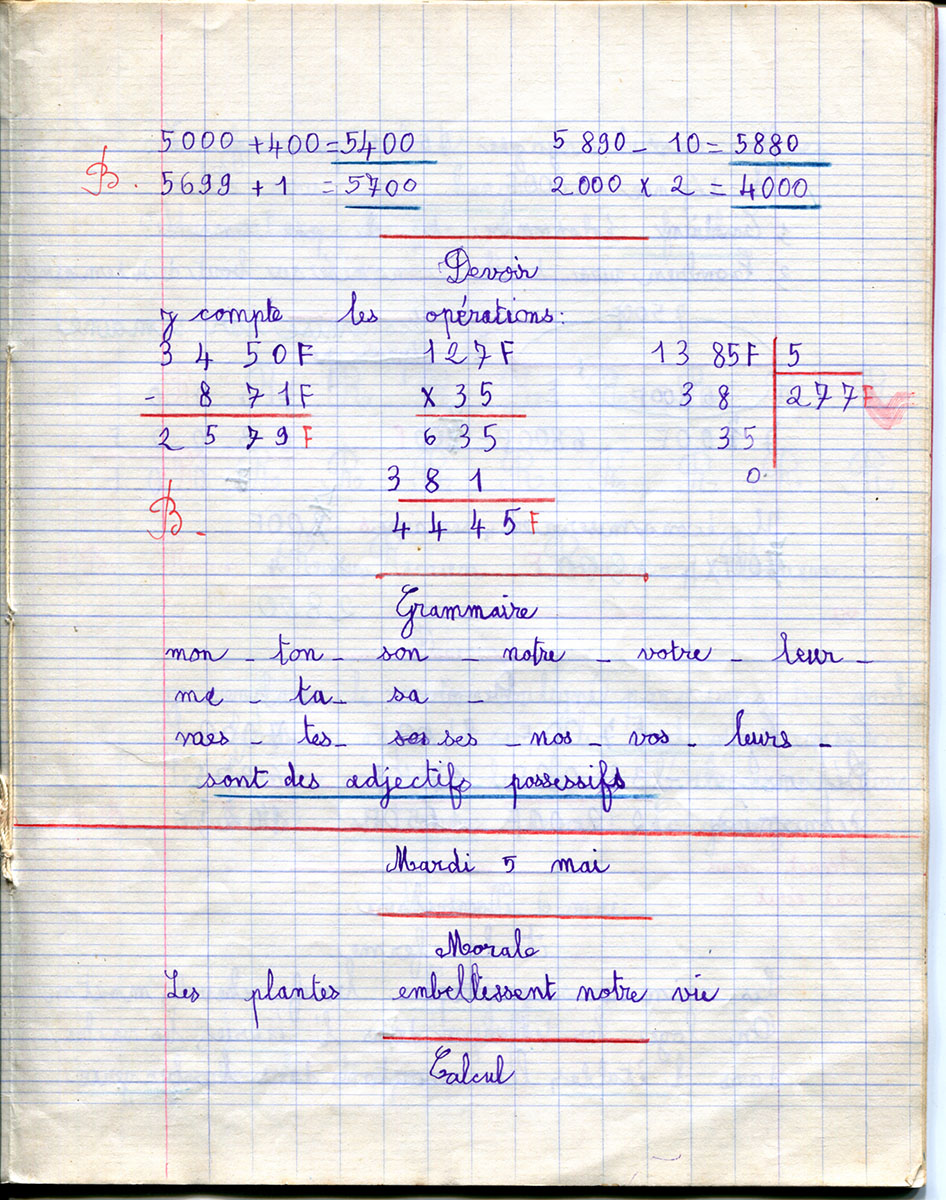 5000 + 400 = 5400 5 890 - 10 = 5880
B. 5699 + 1 = 5700 2000 x 2 = 4000
Devoir
Je compte les opérations:
3 4 50F 127F 13 85F 5
- 8 71F x 35 3 8 277F
2 5 79F 6 35 35
3 8 1 0
B. 4 4 45F
Grammaire
mon - ton - son - notre - votre - leur -
ma - ta - sa -
mes - tes - ses - nos - vos - leurs -
sont des adjectifs possessifs
Mardi 5 mai
Morale
Les plantes embellissent notre vie
Calcul